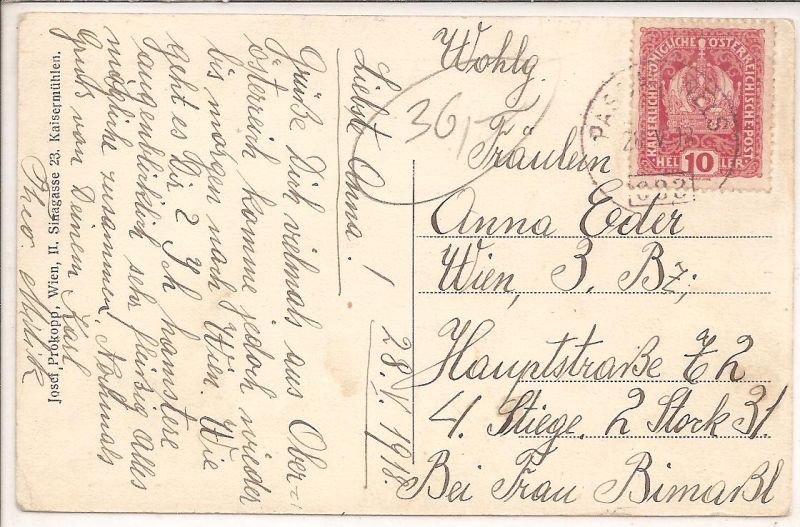 Liebste Anna!
28. V. 1918.
Grüße Dich vielmals aus Ober-
österreich komme jedoch wieder
bis morgen nach Wien. Wie
geht es Dir? Ich hamstere
augenblicklich sehr fleißig alles
mögliche zusammen. Nochmals
Gruß von Deinem Karl
Theo.
Josef Prokopp, Wien, II. Sinagasse 23. Kaisermühlen.
Wohlg.
Fräulein
Anna Eder
Wien, 3. Bz;
Hauptstraße 72
4. Stiege. 2 Stock 31.
Bei Frau Bimaßl
36,-
KAISERLICHE KÖNIGLICHE ÖSTERREICHISCHE POST
HELLER
10